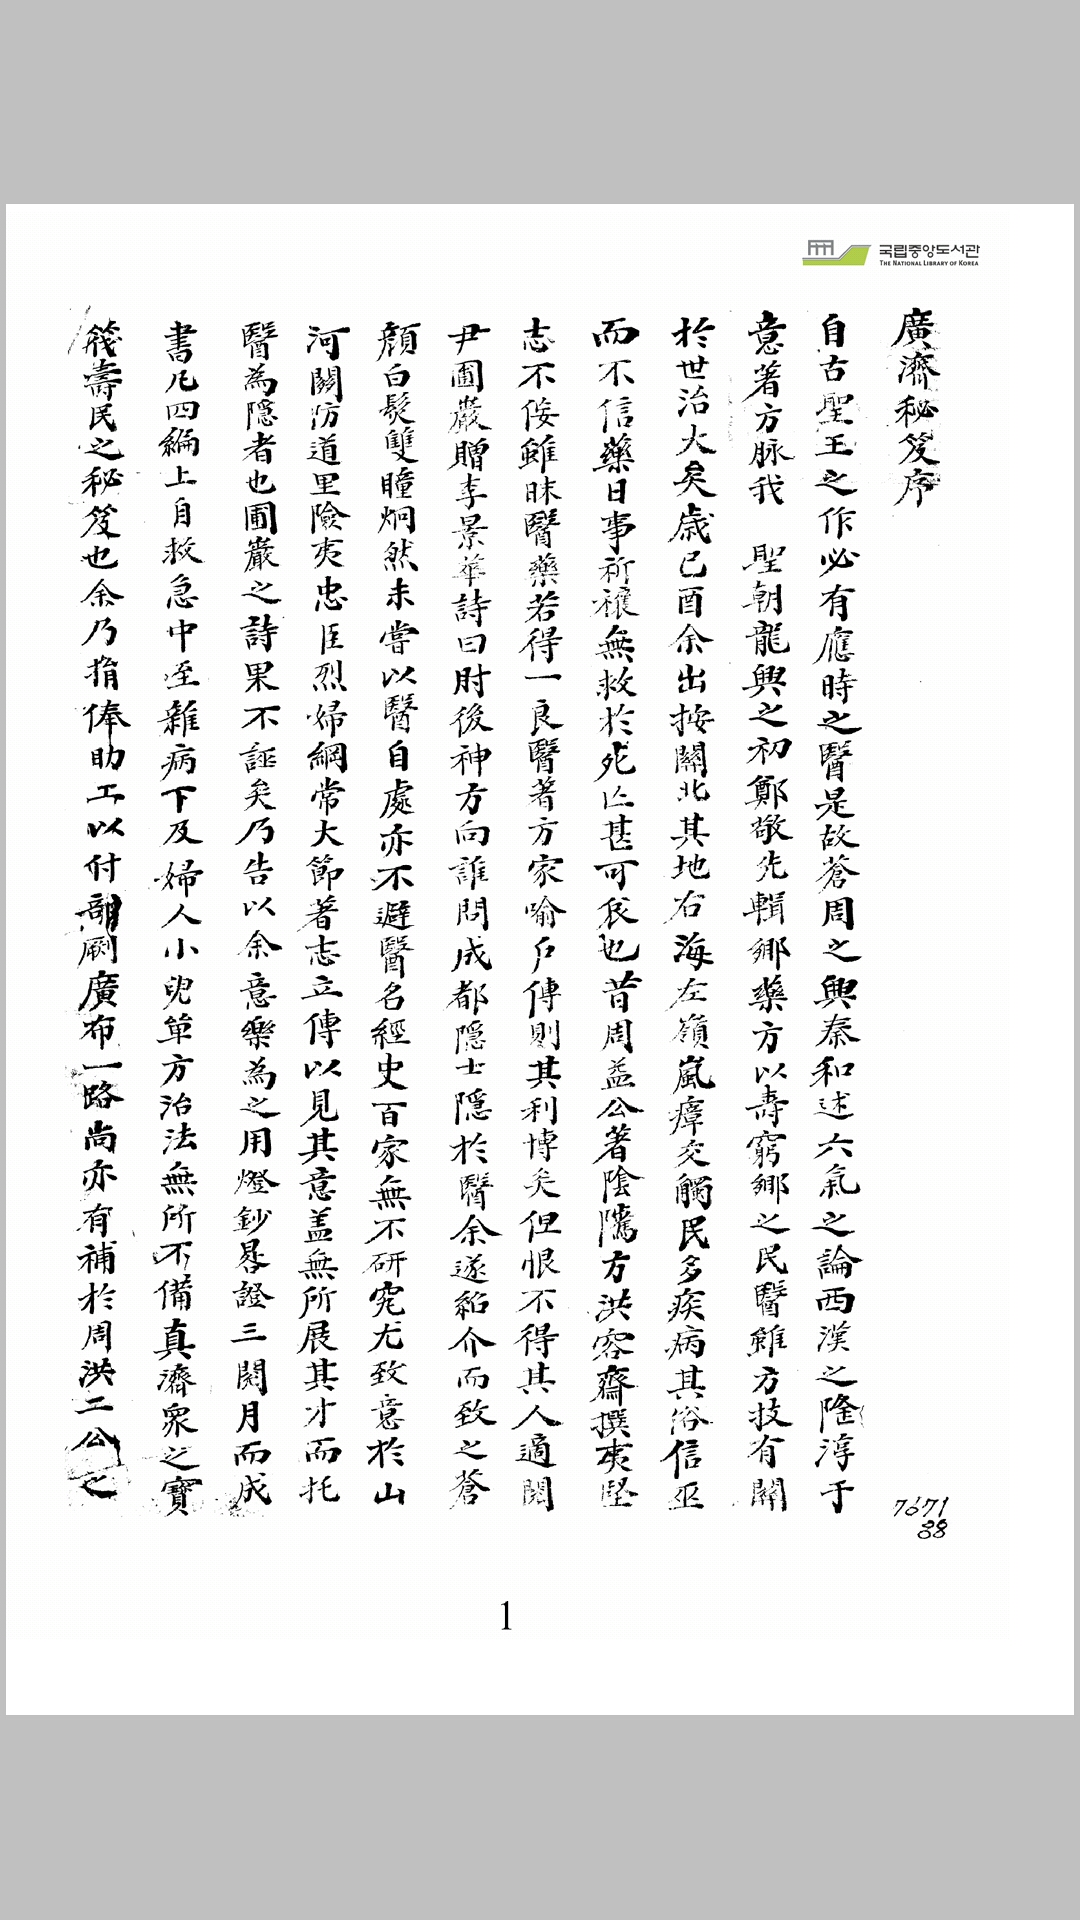 국립중앙도서관
THE NATIONAL LIBRARY OF KOREA
廣濟秘笈序
自古聖王之作必有應時之醫是故蒼周之興秦和述六氣之論西漢之隆淳于
意著方脉我 聖朝龍興之初鄭敬先輯鄉藥方以壽窮鄉之民醫雖方技有關
於世治大矣歲己酉余出按關北其地右海左嶺嵐瘴交觸民多疾病其俗信巫
而不信藥日事祈禳無救於死亡甚可哀也昔周益公著陰隲方洪容齋撰夷堅
志不侫雖昧醫藥若得一良醫著方家喻戶傳則其利博矣但恨不得其人適閱
尹圃巖贈李景華詩曰肘後神方向誰問成都隱士隱於醫余遂紹介而致之蒼
顏白髮雙瞳烱然未嘗以醫自處亦不避醫名經史百家無不研究尤致意於山
河關防道里險夷忠臣烈婦綱常大節著志立傳以見其意盖無所展其才而托
醫為隱者也圃巖之詩果不誣矣乃告以余意樂為之用燈鈔晷證三閱月而成
書凡四編上自救急中至雜病下及婦人小兒單方治法無所不備真濟衆之寶
筏壽民之秘笈也余乃捐俸助工以付剞劂廣布一路尚亦有補於周洪二公之
7671
88
1